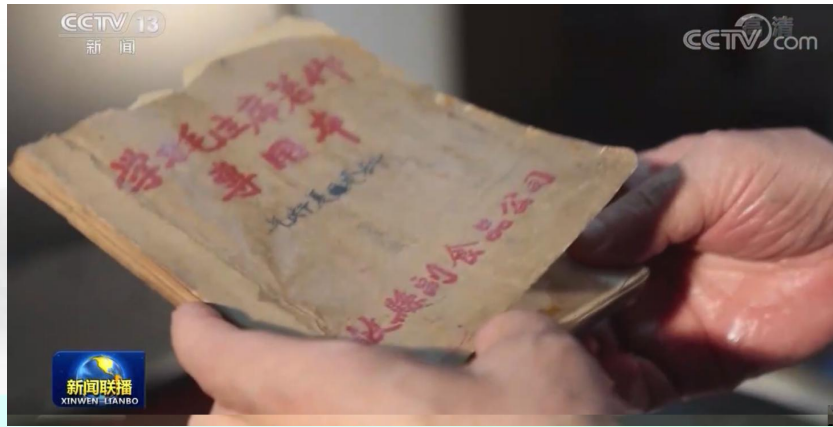 CCTV 13
新闻
高清
CCTV com
学习毛主席着作
专用本
副食品公司
新闻联播
XINWEN-LIANBO